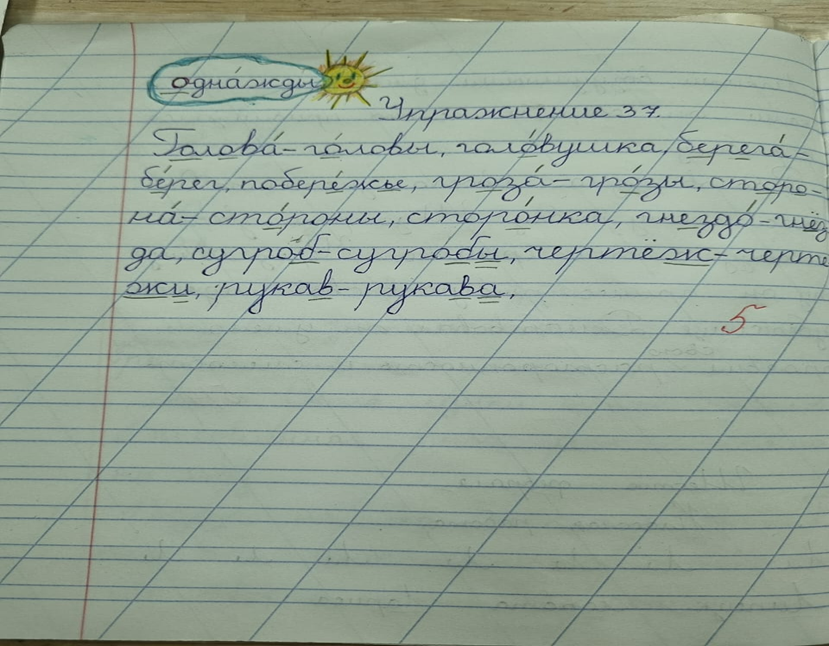 одна́жды
Упражнение 37.
Голова́ - го́ловы, голо́вушка, берега́ -
бе́рег, побере́жье, гроза́ - гро́зы, сторо-
на́ - сто́роны, сторо́нка, гнездо́ - гнёз
да, сугроб - сугробы, чертёж - черте
жи, рукав - рукава.
5